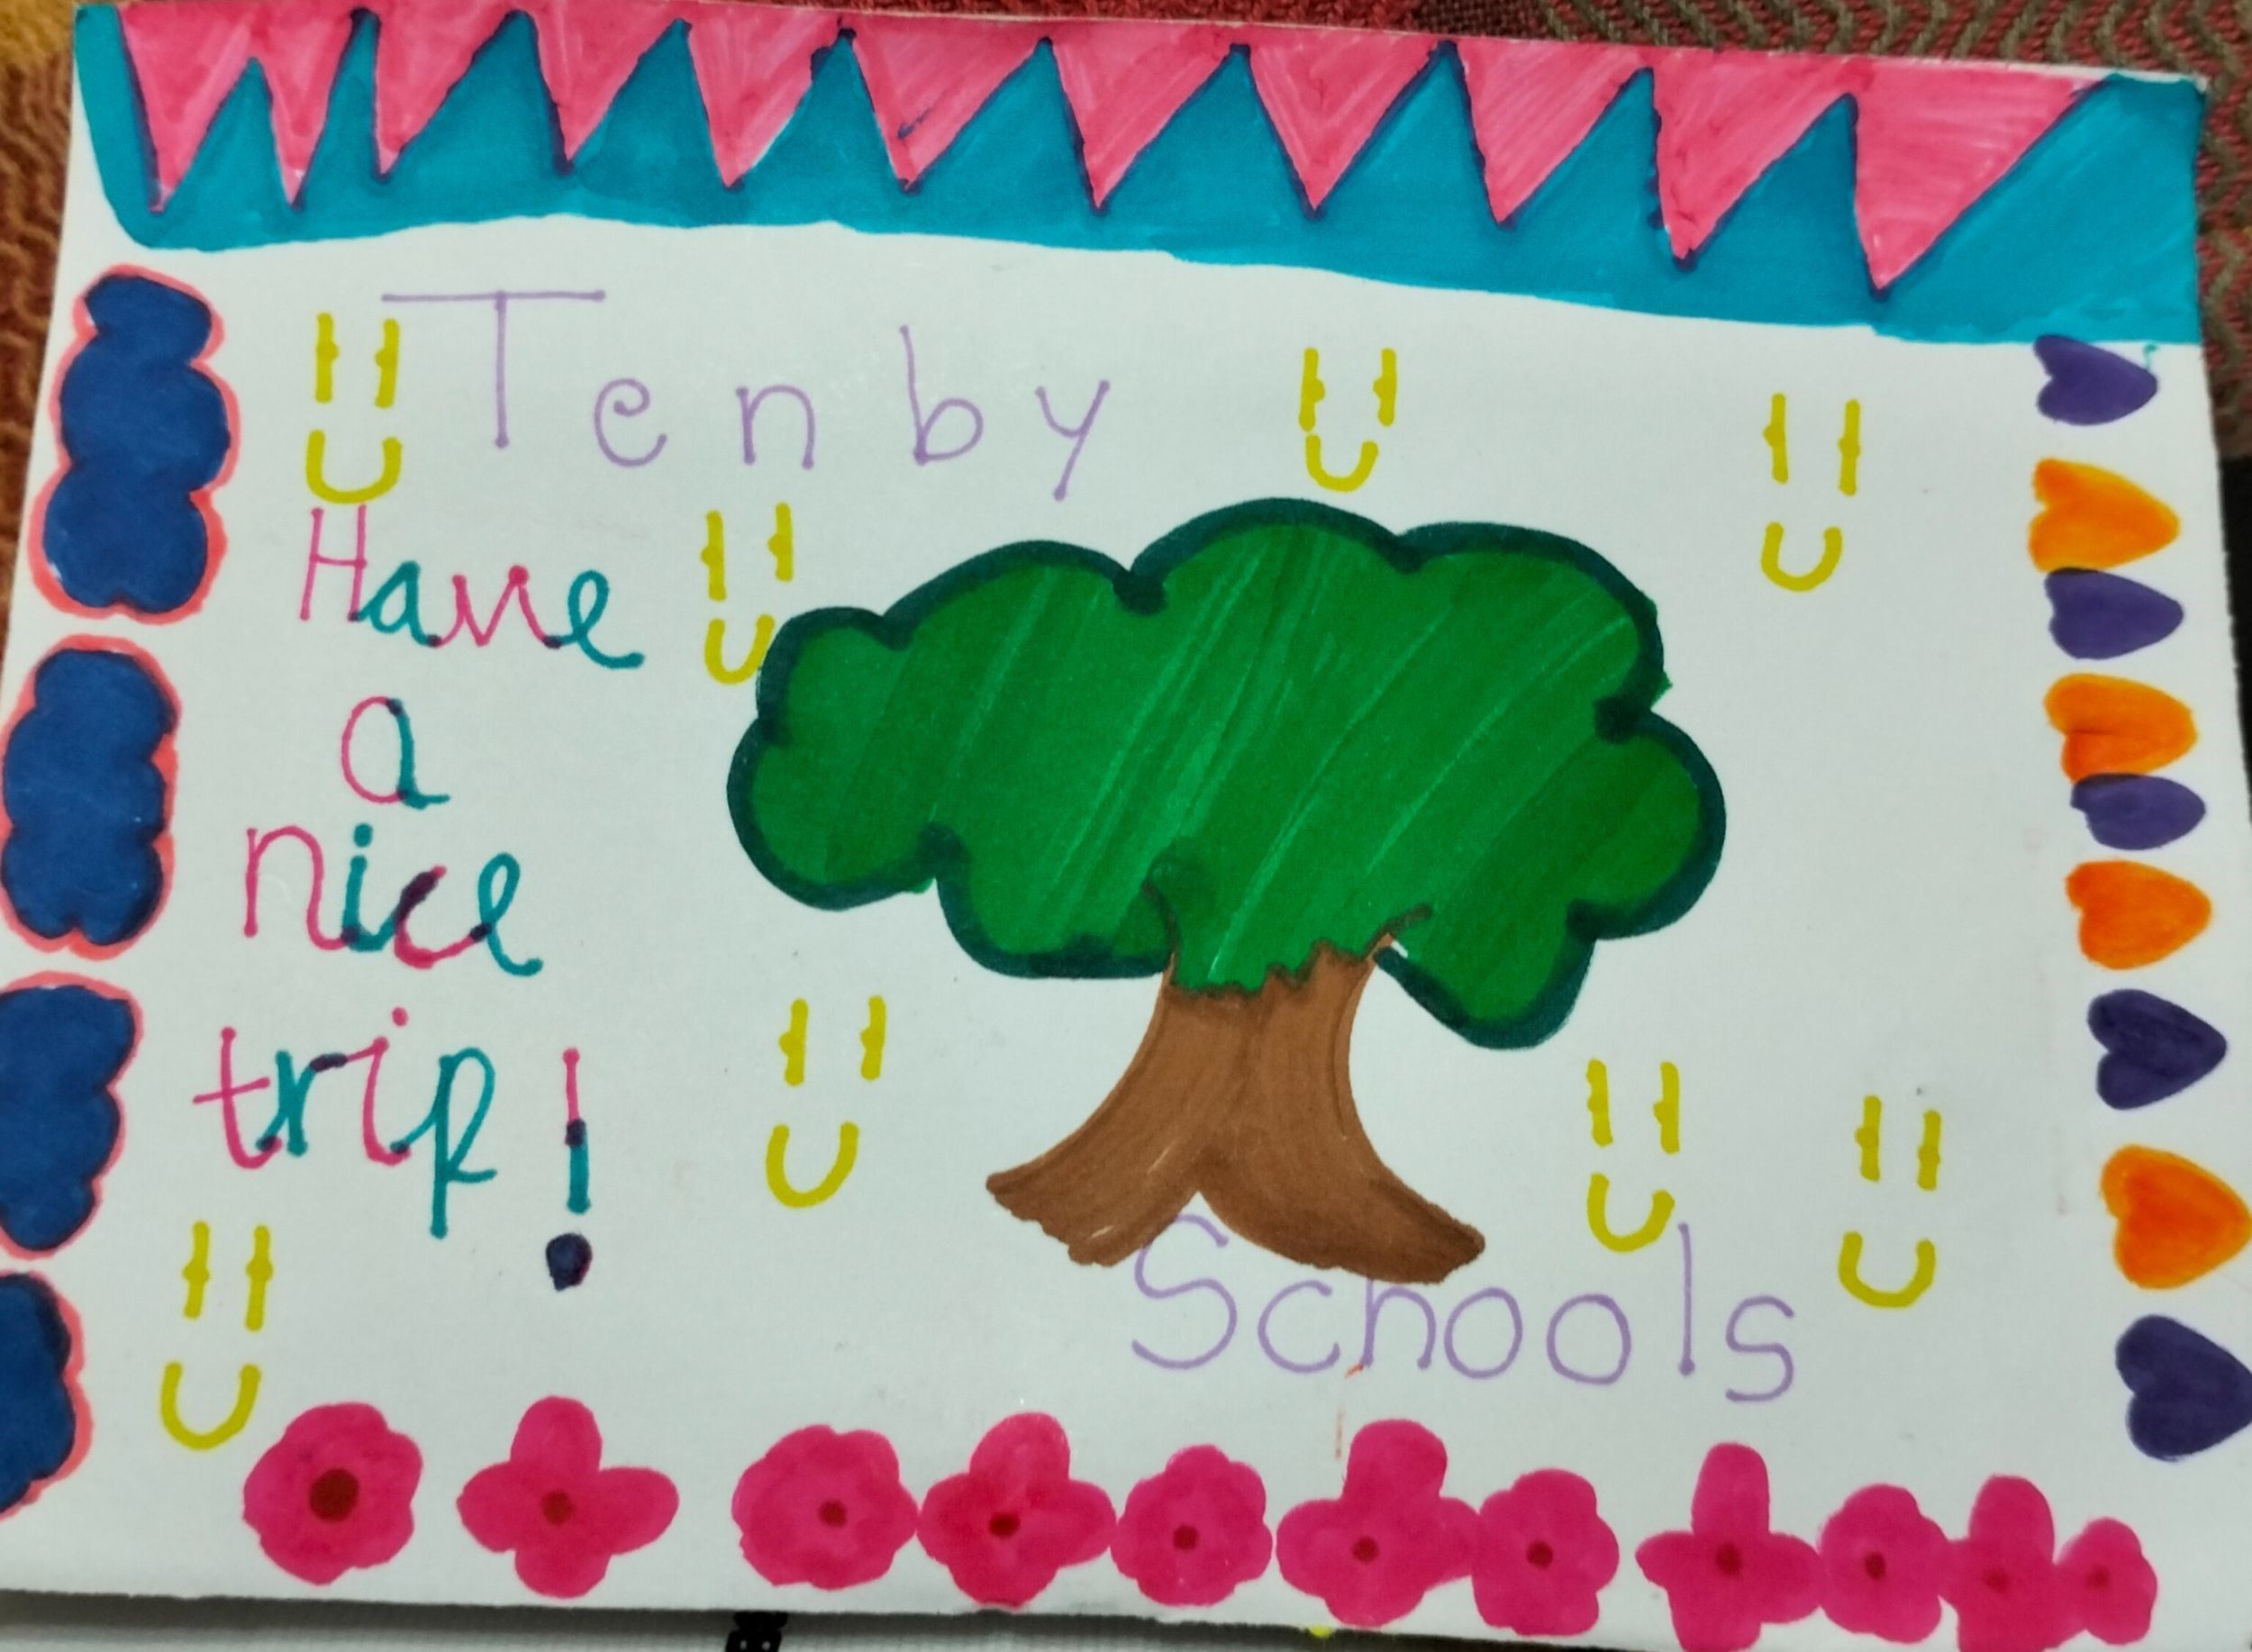 Tenby
Have
a
nice
trip!
Schools